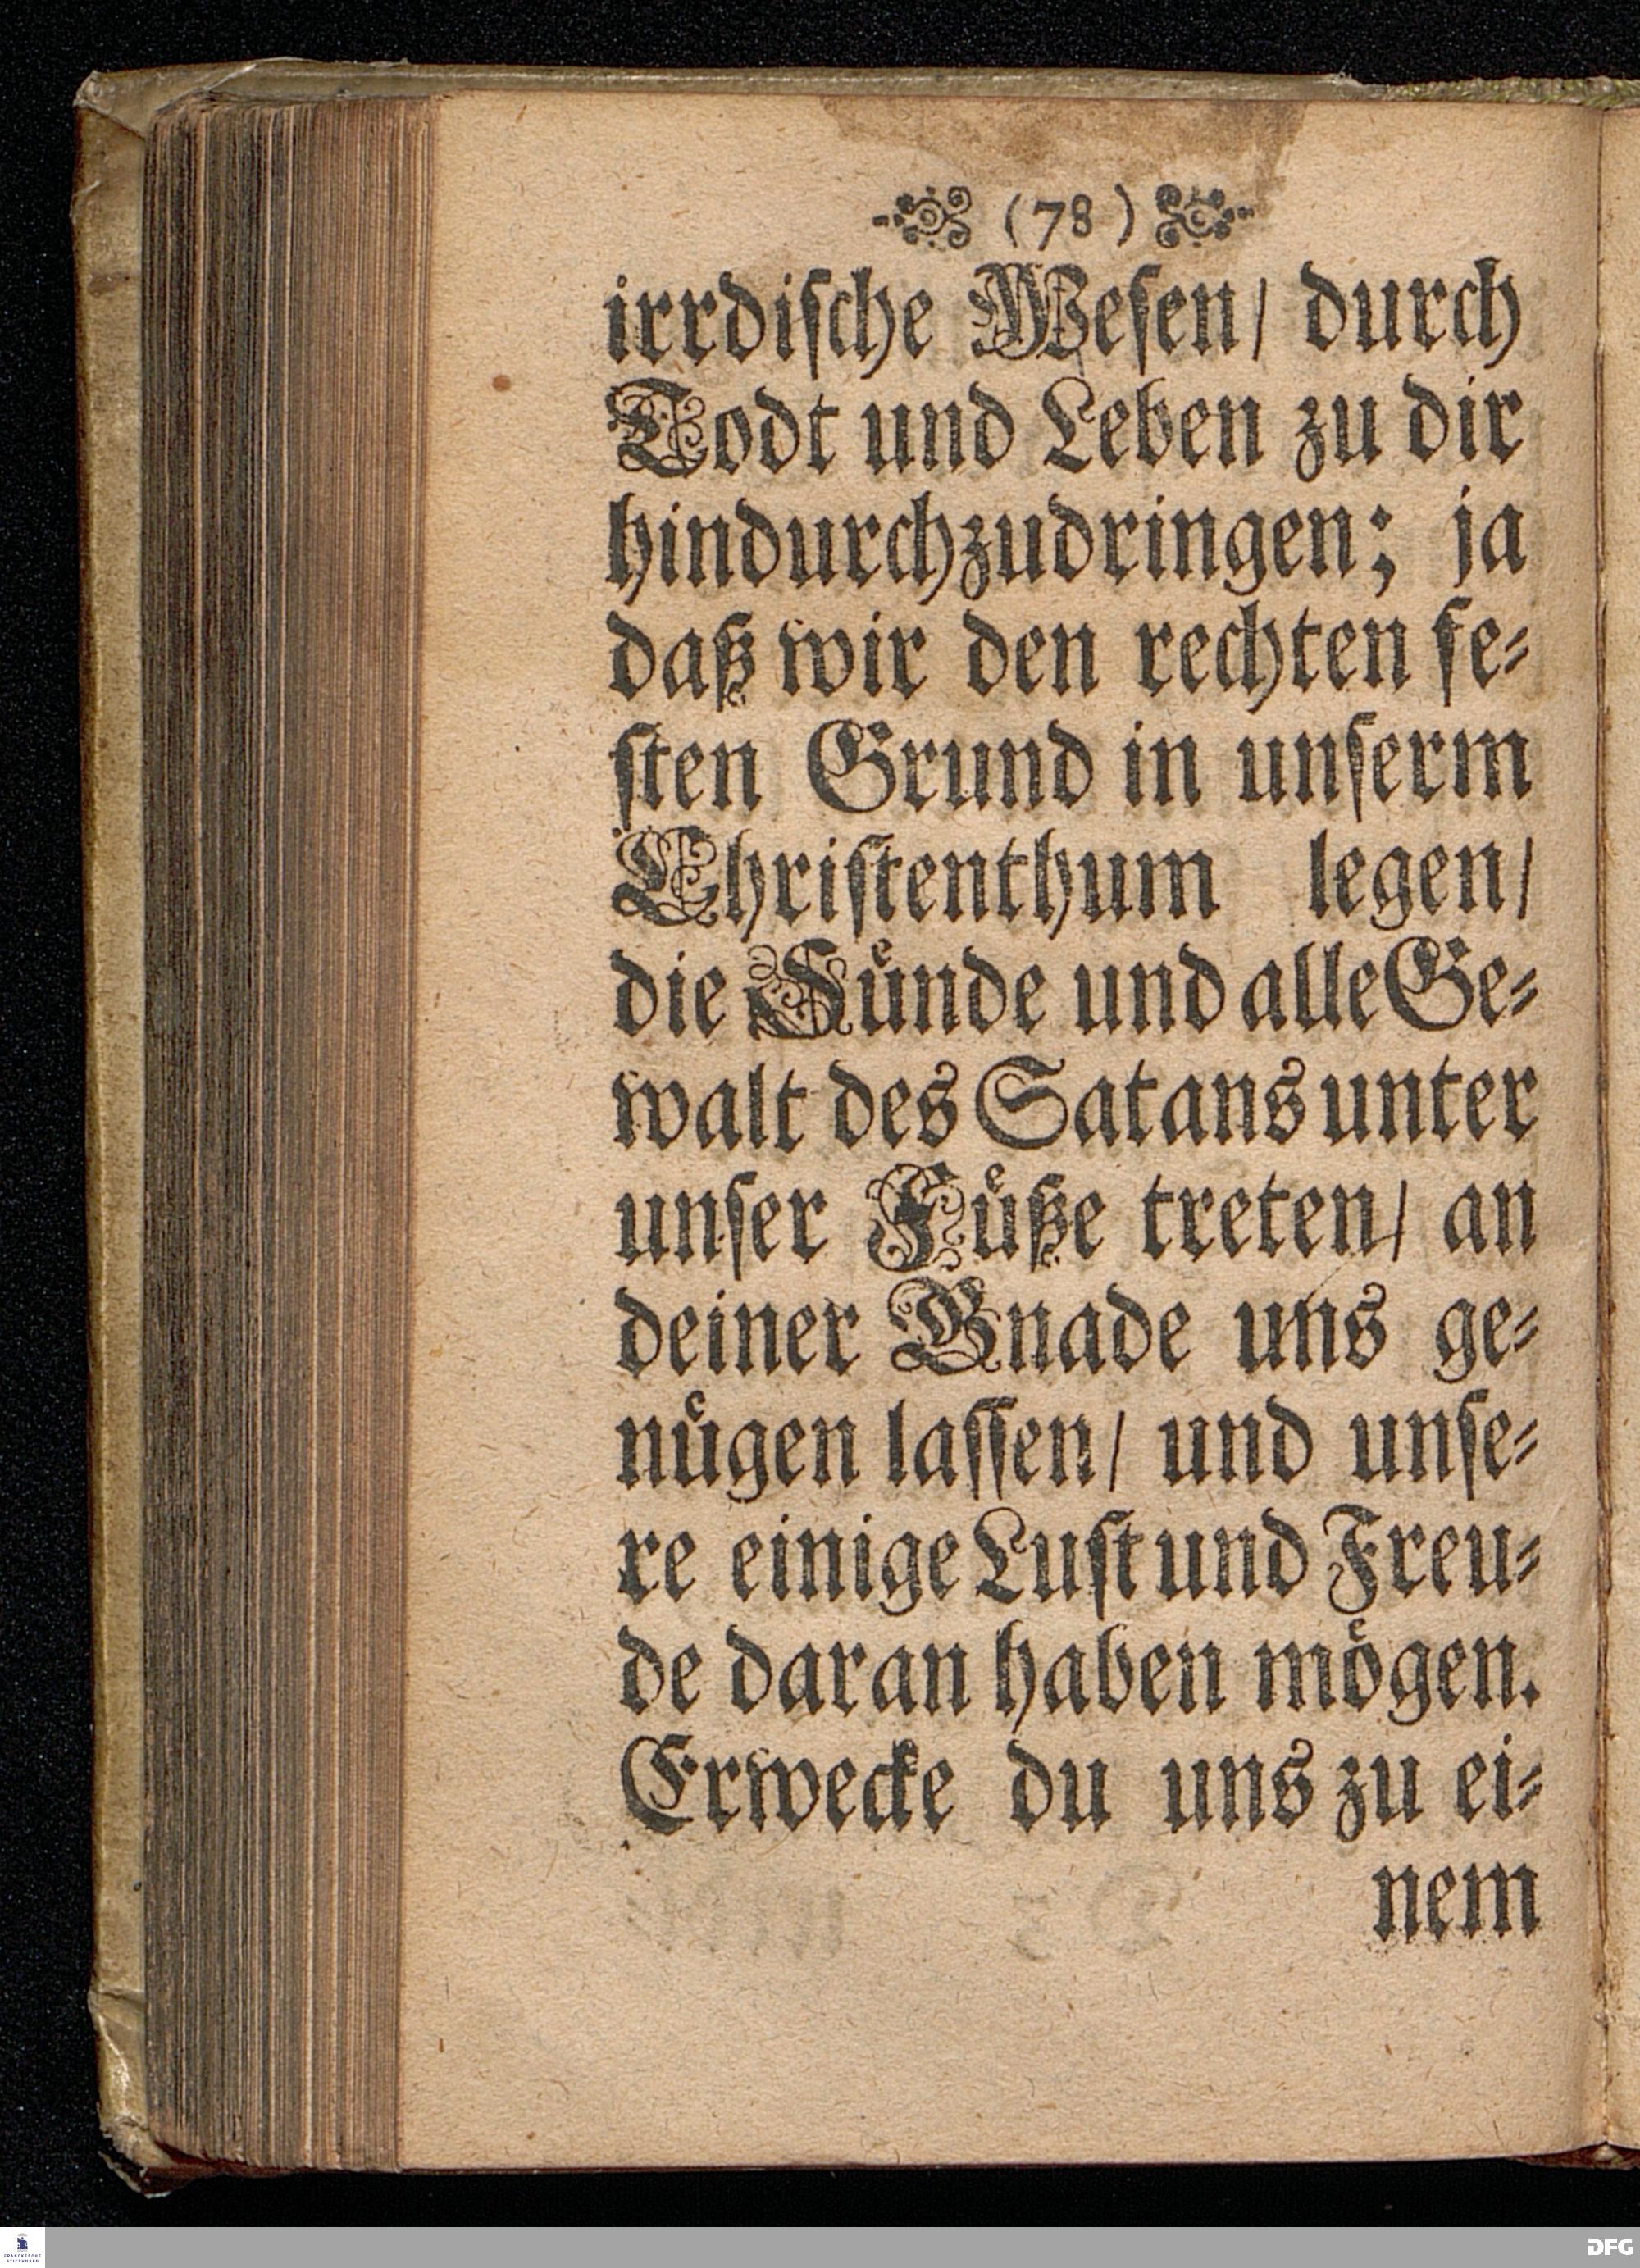 (78)
irrdiſche Weſen/ durch
Todt und Leben zu dir
hindurchzudringen; ja
daß wir den rechten fe⸗
ſten Grund in unſerm
Chriſtenthum legen/
die Suͤnde und alle Ge⸗
walt des Satans unter
unſer Fuͤße treten/ an
deiner Gnade uns ge⸗
nuͤgen laſſen/ und unſe⸗
re einige Luſt und Freu⸗
de daran haben moͤgen.
Erwecke du uns zu ei⸗
nem
FRANCKESCHE
STIFTUNGEN
DFG